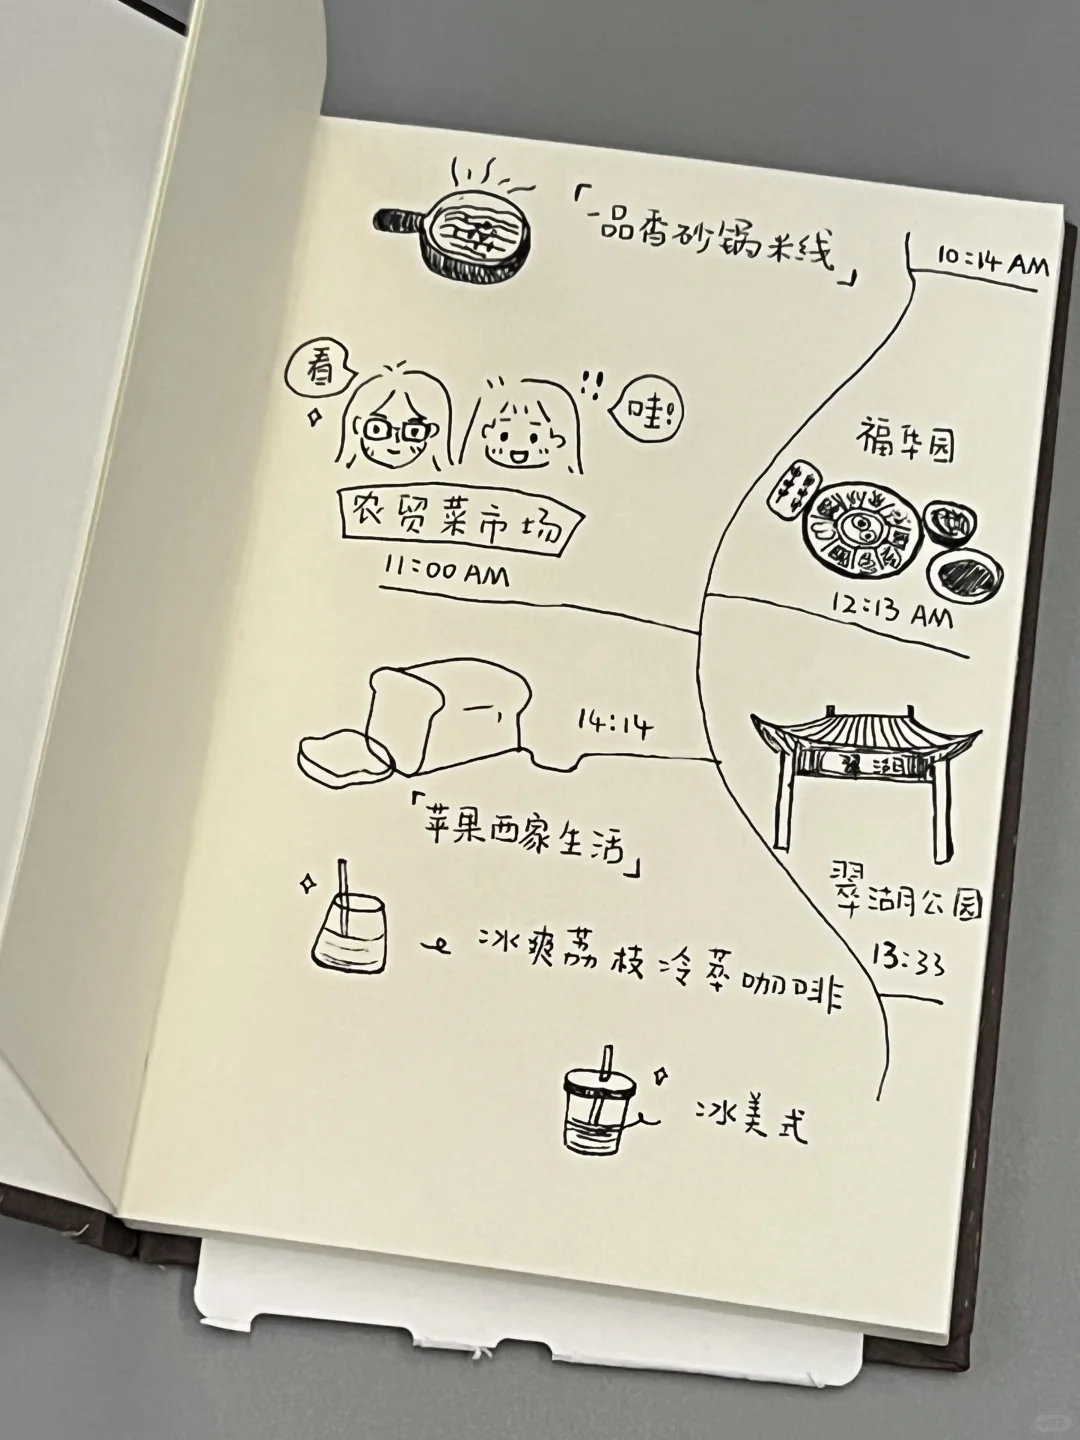 「一品香砂锅米线」
10:14 AM
看
哇!
!!
农贸菜市场
11:00 AM
福华园
12:13 AM
14:14
「苹果西家生活」
翠湖
翠湖公园
13:33
冰爽荔枝冷萃咖啡
冰美式